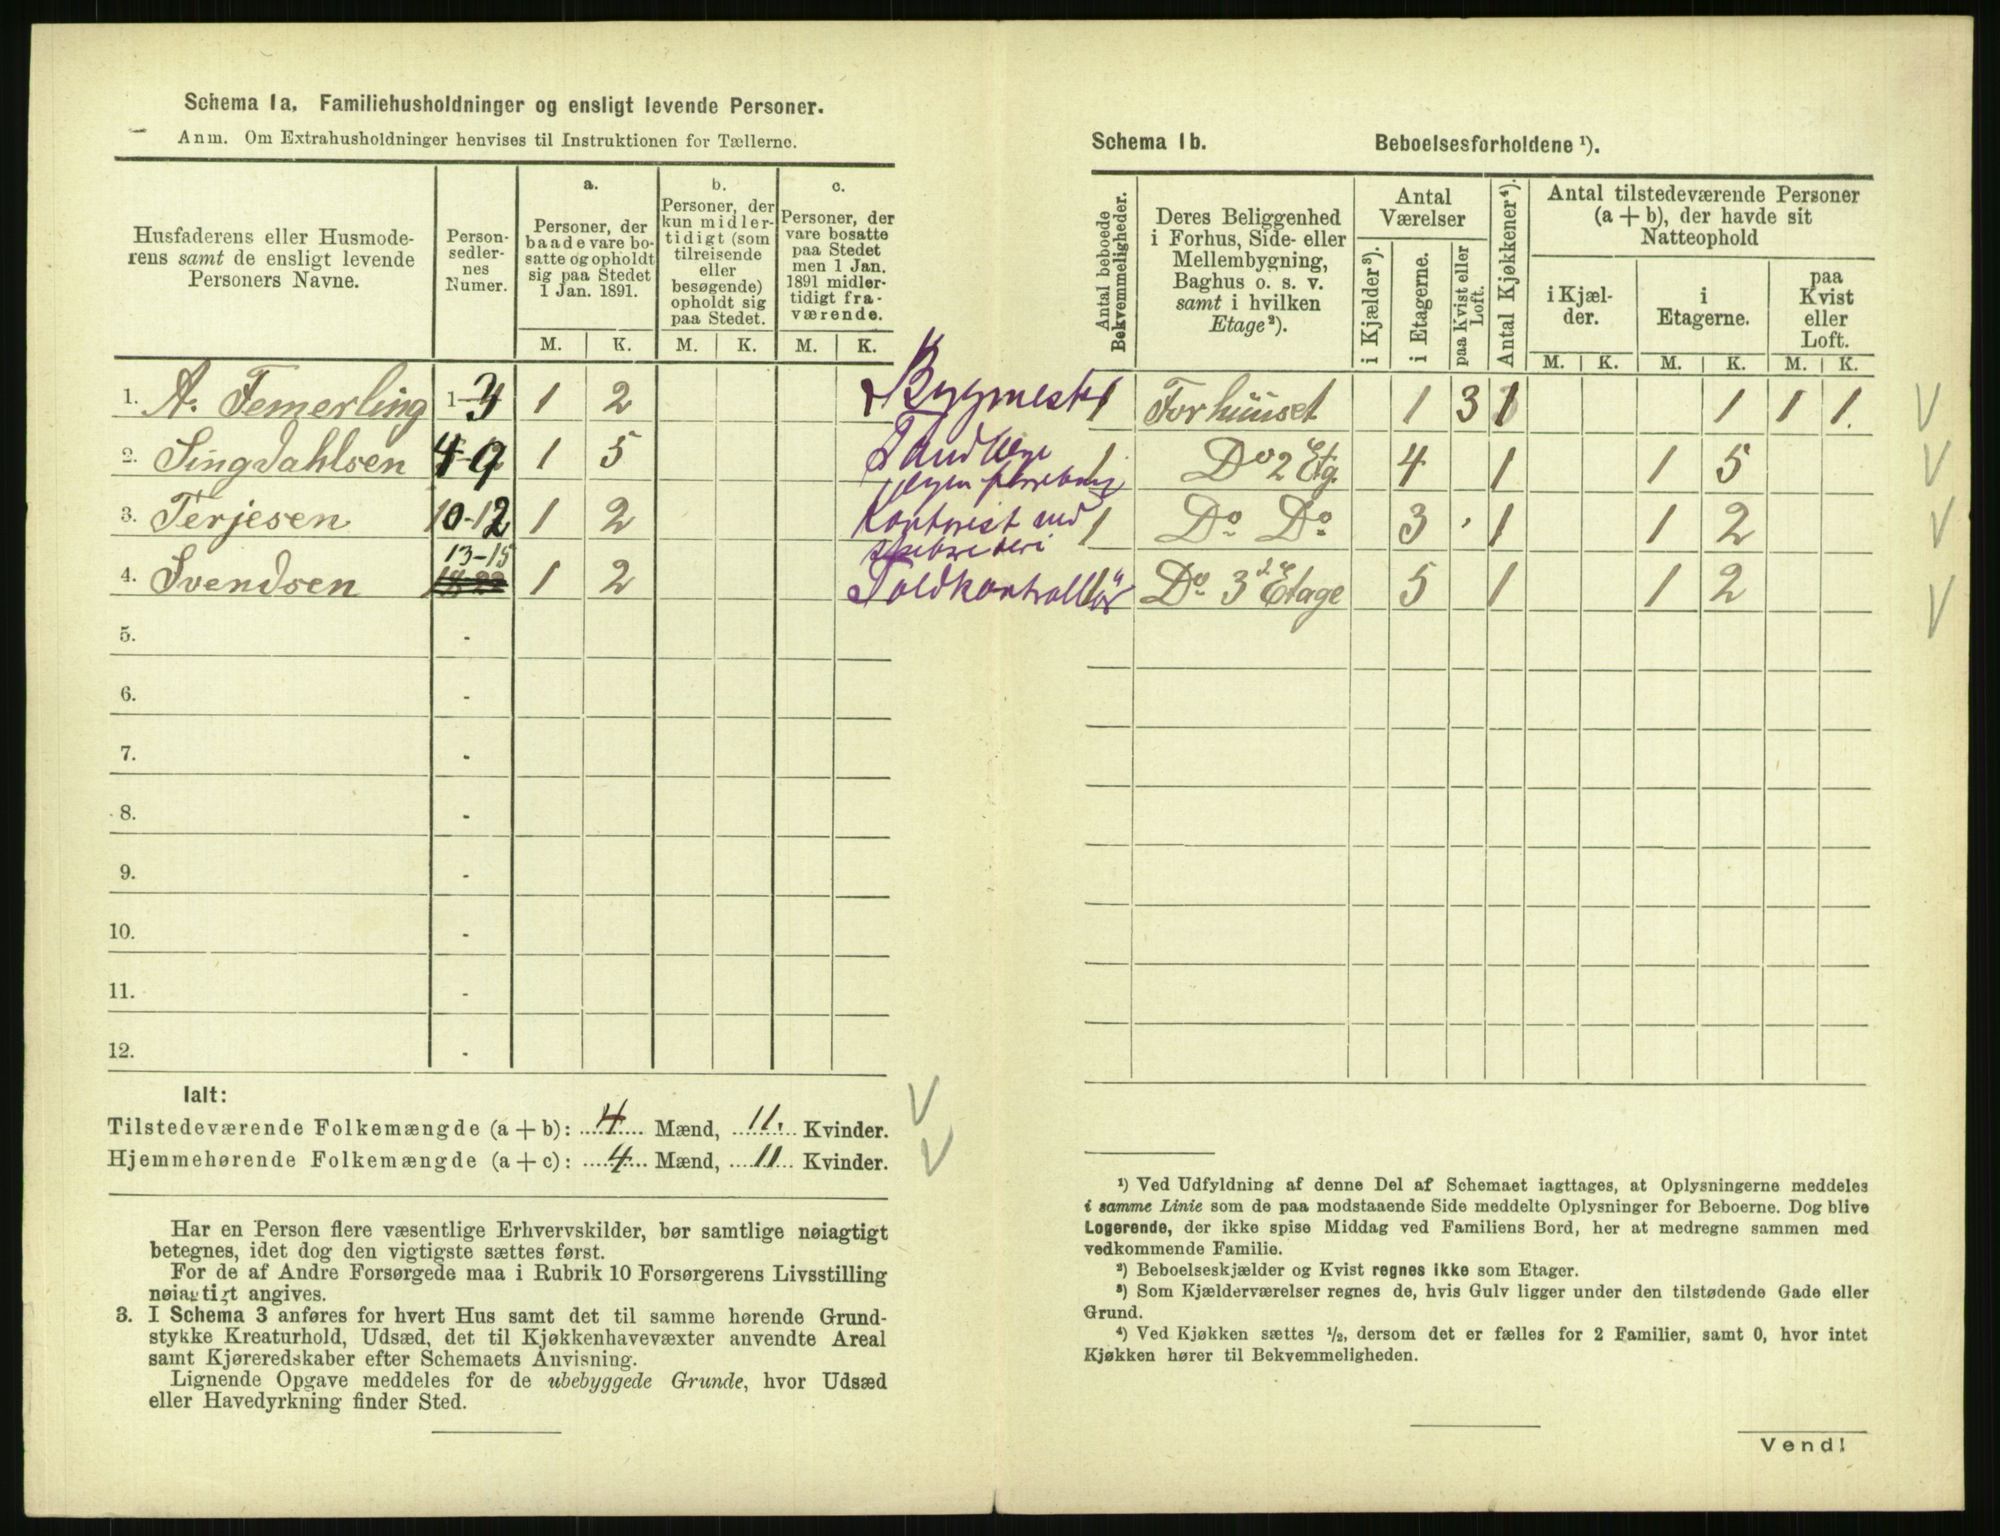 Schema 1a. Familiehusholdninger og ensligt levende Personer.
Anm. Om Extrahusholdninger henvises til Instruktionen for Tællerne.
Husfaderens eller Husmoderens samt de ensligt levende Personers Navne.
Personsedlernes Numer.
a.
Personer, der baade vare bosatte og opholdt sig paa Stedet 1 Jan. 1891.
b.
Personer, der kun midlertidigt (som tilreisende eller besøgende) opholdt sig paa Stedet.
c.
Personer, der vare bosatte paa Stedet men 1 Jan. 1891 midlertidigt fraværende.
M. K. M. K. M. K.
1. A. Femerling 1-3 1 2 Bygmester
2. Singdahlsen 4-9 1 5 Tandlæge
egen
3. Terjesen 10-12 1 2 Kontorist ved
13-15
4. Svendsen 18-22 1 2 Toldkontrollör
5. -
6. -
7. -
8. -
9. -
10. -
11. -
12. -
Ialt:
Tilstedeværende Folkemængde (a + b): 4 Mænd, 11. Kvinder.
Hjemmehørende Folkemængde (a + c): 4 Mænd, 11 Kvinder.
Har en Person flere væsentlige Erhvervskilder, bør samtlige nøiagtigt
betegnes, idet dog den vigtigste sættes først.
For de af Andre Forsørgede maa i Rubrik 10 Forsørgerens Livsstilling
nøiagtigt angives.
3. I Schema 3 anføres for hvert Hus samt det til samme hørende Grund-
stykke Kreaturhold, Udsæd, det til Kjøkkenhavevæxter anvendte Areal
samt Kjøreredskaber efter Schemaets Anvisning.
Lignende Opgave meddeles for de ubebyggede Grunde, hvor Udsæd
eller Havedyrkning finder Sted.
Schema 1b. Beboelsesforholdene ¹).
Antal beboede Bekvemmeligheder.
Deres Beliggenhed i Forhus, Side- eller Mellembygning, Baghus o. s. v. samt i hvilken Etage²).
Antal Værelser
i Kjælder³).
i Etagerne.
paa Kvist eller Loft.
Antal Kjøkkener⁴).
Antal tilstedeværende Personer (a + b), der havde sit Natteophold
i Kjælder.
i Etagerne.
paa Kvist eller Loft.
M. K. M. K. M. K.
1 Forhuset 1 3 1 1 1 1.
1 Do 2 Etg. 4 1 1 5
1 Do Do 3 1 1 2
1 Do 3d Etage 5 1 1 2
¹) Ved Udfyldning af denne Del af Schemaet iagttages, at Oplysningerne meddeles
i samme Linie som de paa modstaaende Side meddelte Oplysninger for Beboerne. Dog blive
Logerende, der ikke spise Middag ved Familiens Bord, her at medregne sammen med
vedkommende Familie.
²) Beboelseskjælder og Kvist regnes ikke som Etager.
³) Som Kjælderværelser regnes de, hvis Gulv ligger under den tilstødende Gade eller
Grund.
⁴) Ved Kjøkken sættes ½, dersom det er fælles for 2 Familier, samt 0, hvor intet
Kjøkken hører til Bekvemmeligheden.
Vend!